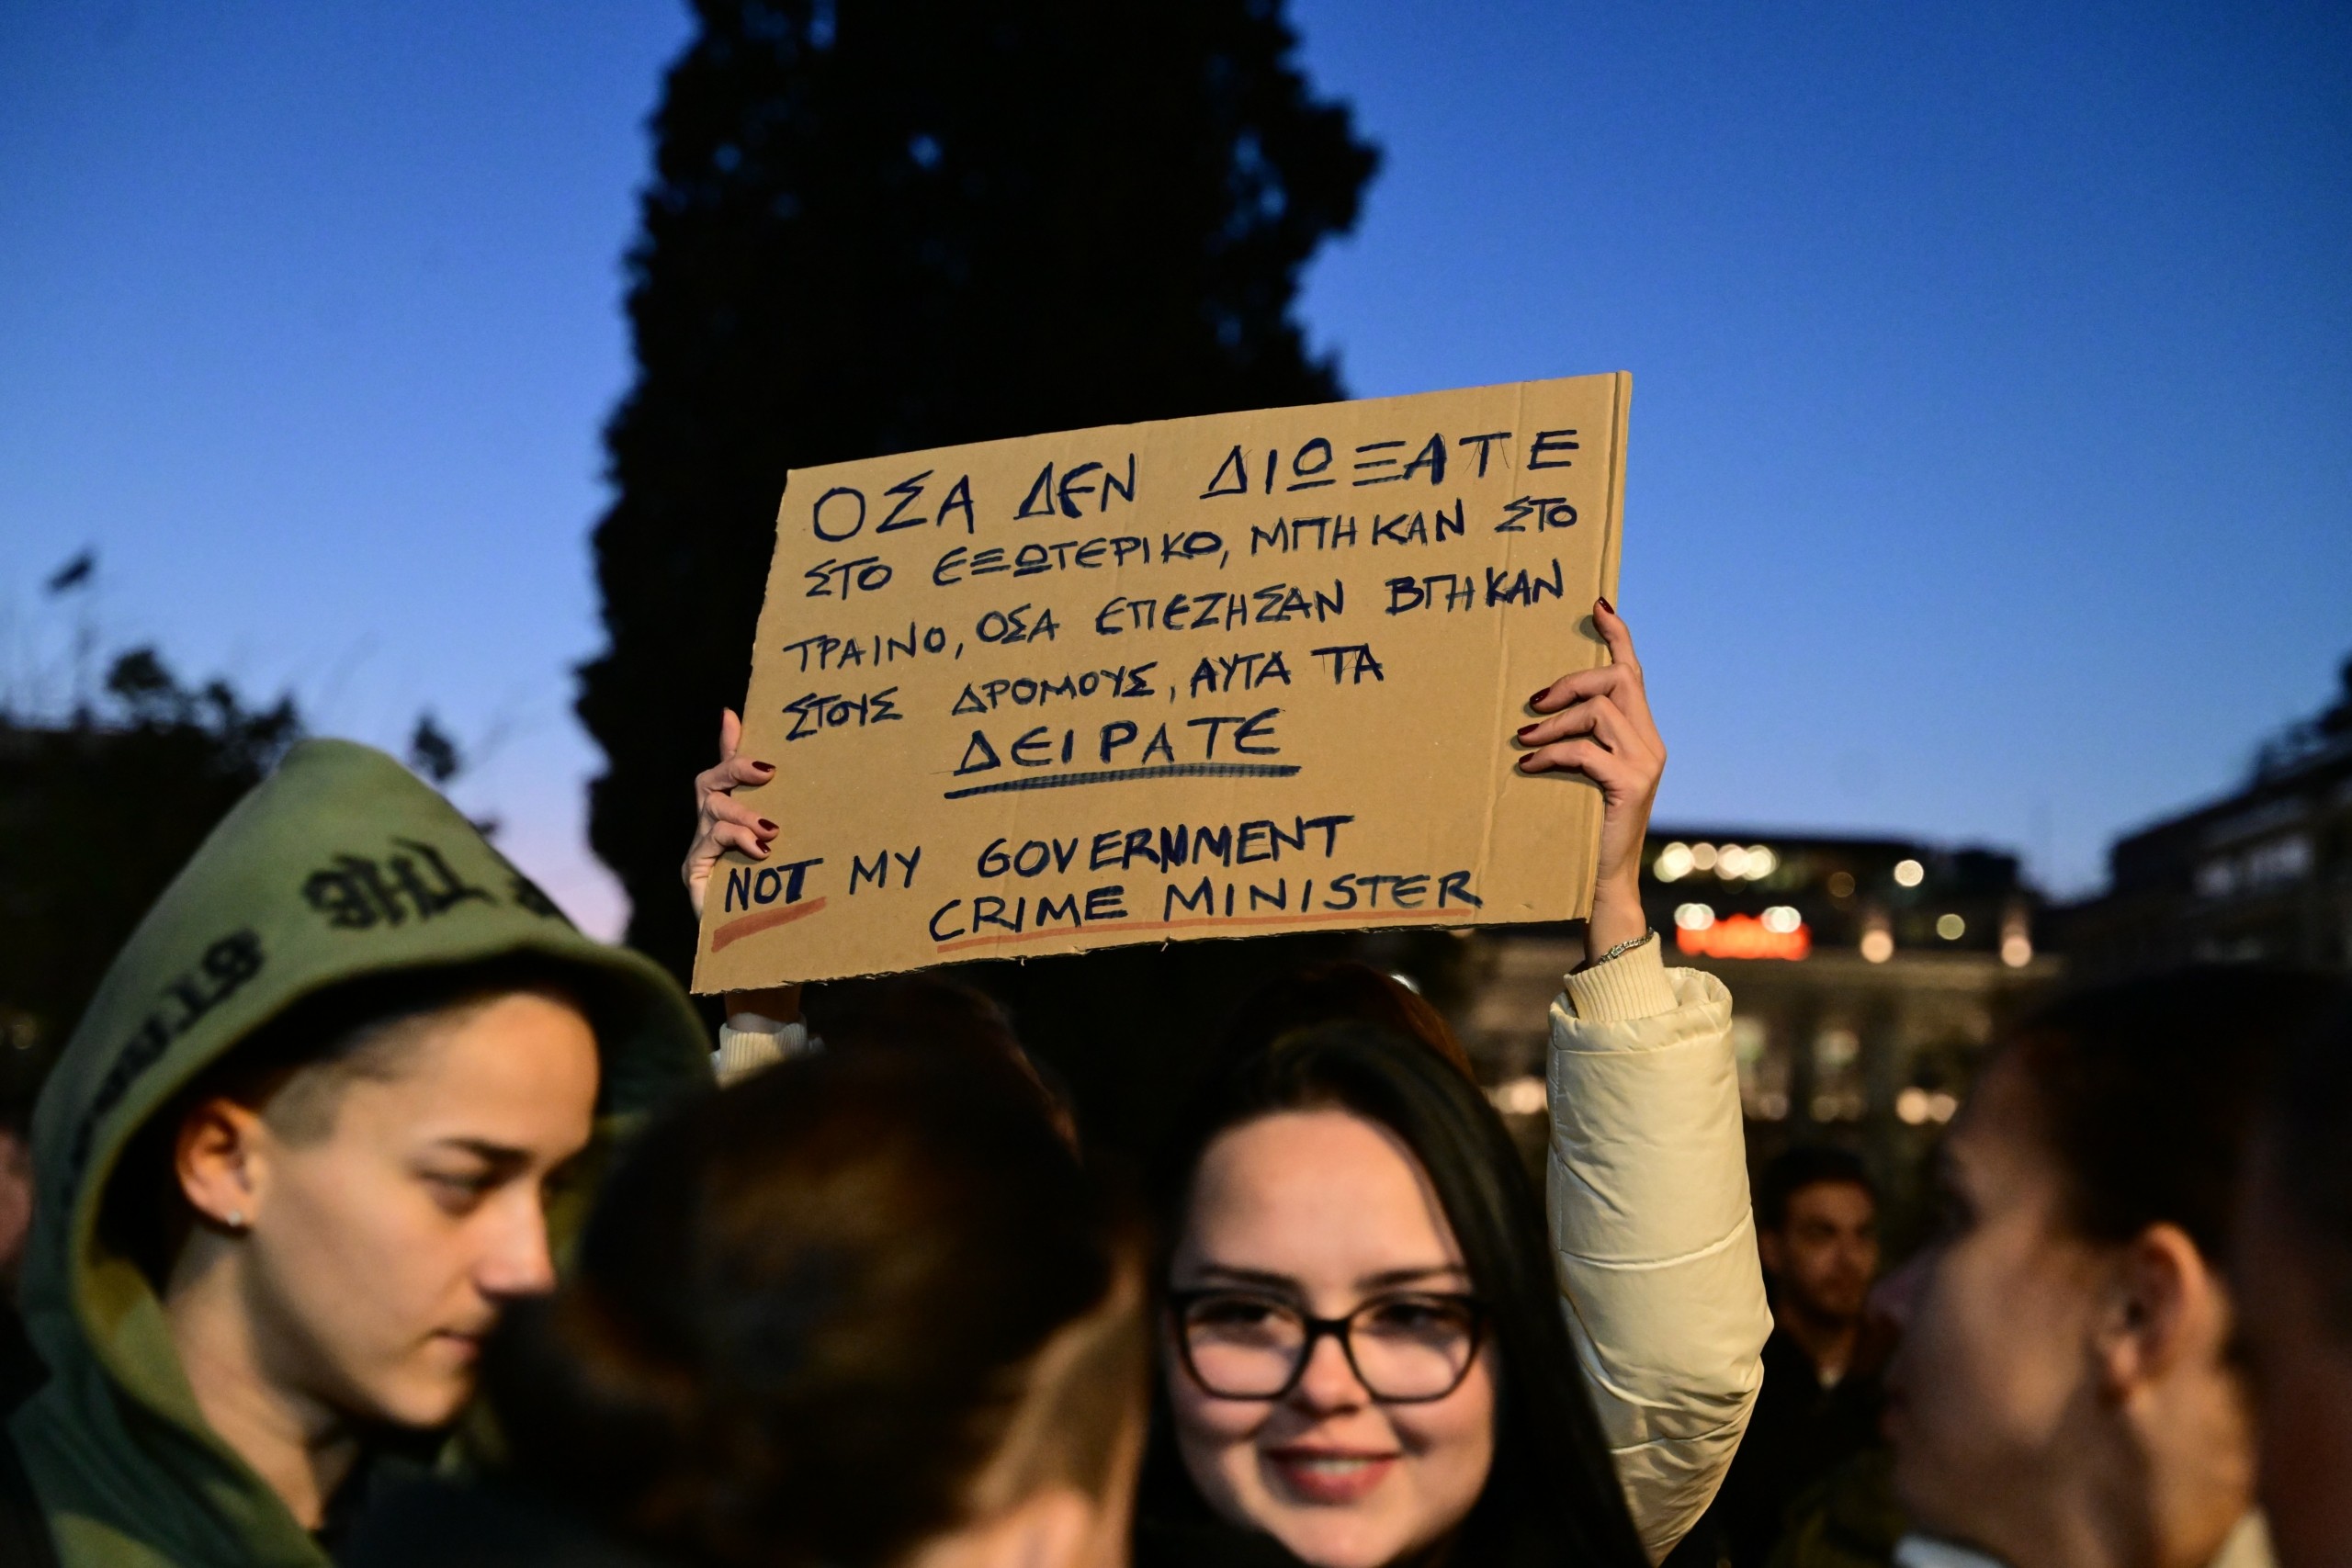 ΟΣΑ ΔΕΝ ΔΙΩΞΑΤΕ
ΣΤΟ ΕΞΩΤΕΡΙΚΟ, ΜΠΗΚΑΝ ΣΤΟ
ΤΡΑΙΝΟ, ΟΣΑ ΕΠΕΖΗΣΑΝ ΒΓΗΚΑΝ
ΣΤΟΥΣ ΔΡΟΜΟΥΣ, ΑΥΤΑ ΤΑ
ΔΕΙΡΑΤΕ
NOT MY GOVERNMENT
CRIME MINISTER
THE